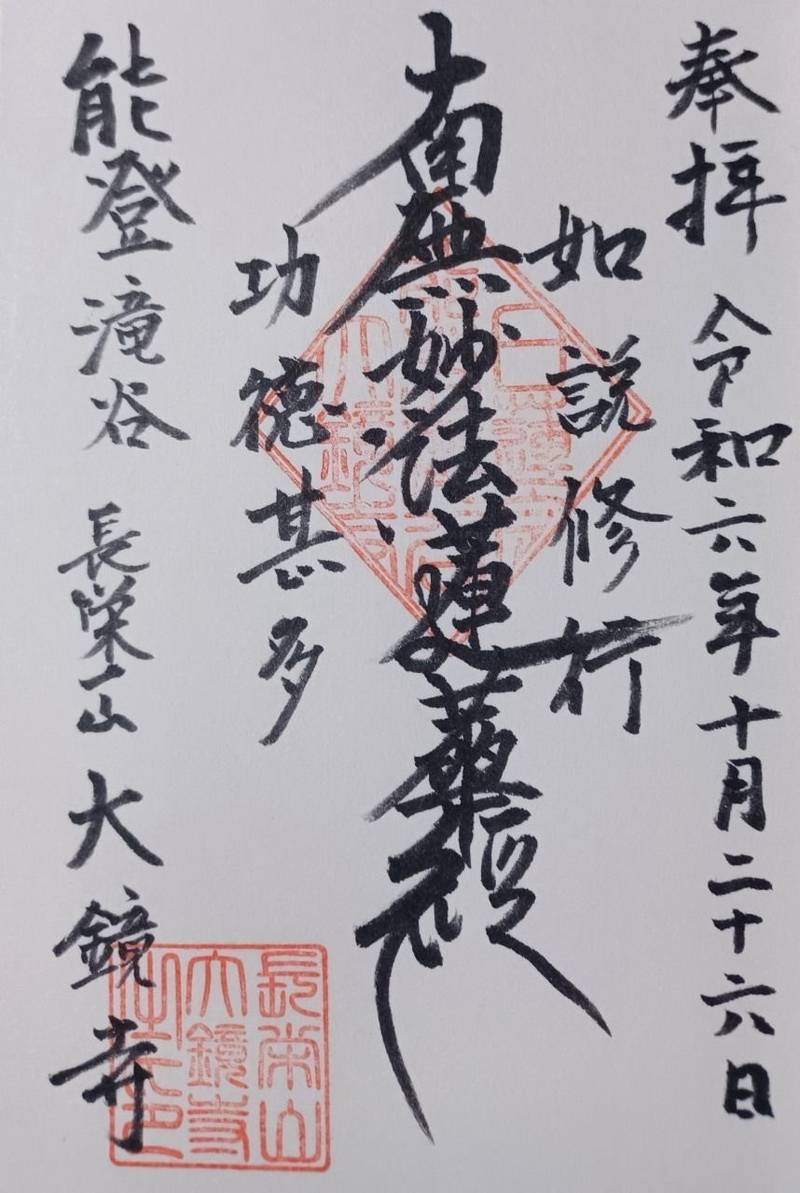 奉拝 令和六年十月二十六日
如説修行
南無妙法蓮華経
功徳甚多
能登滝谷 長栄山 大鏡寺
長栄山
大鏡寺